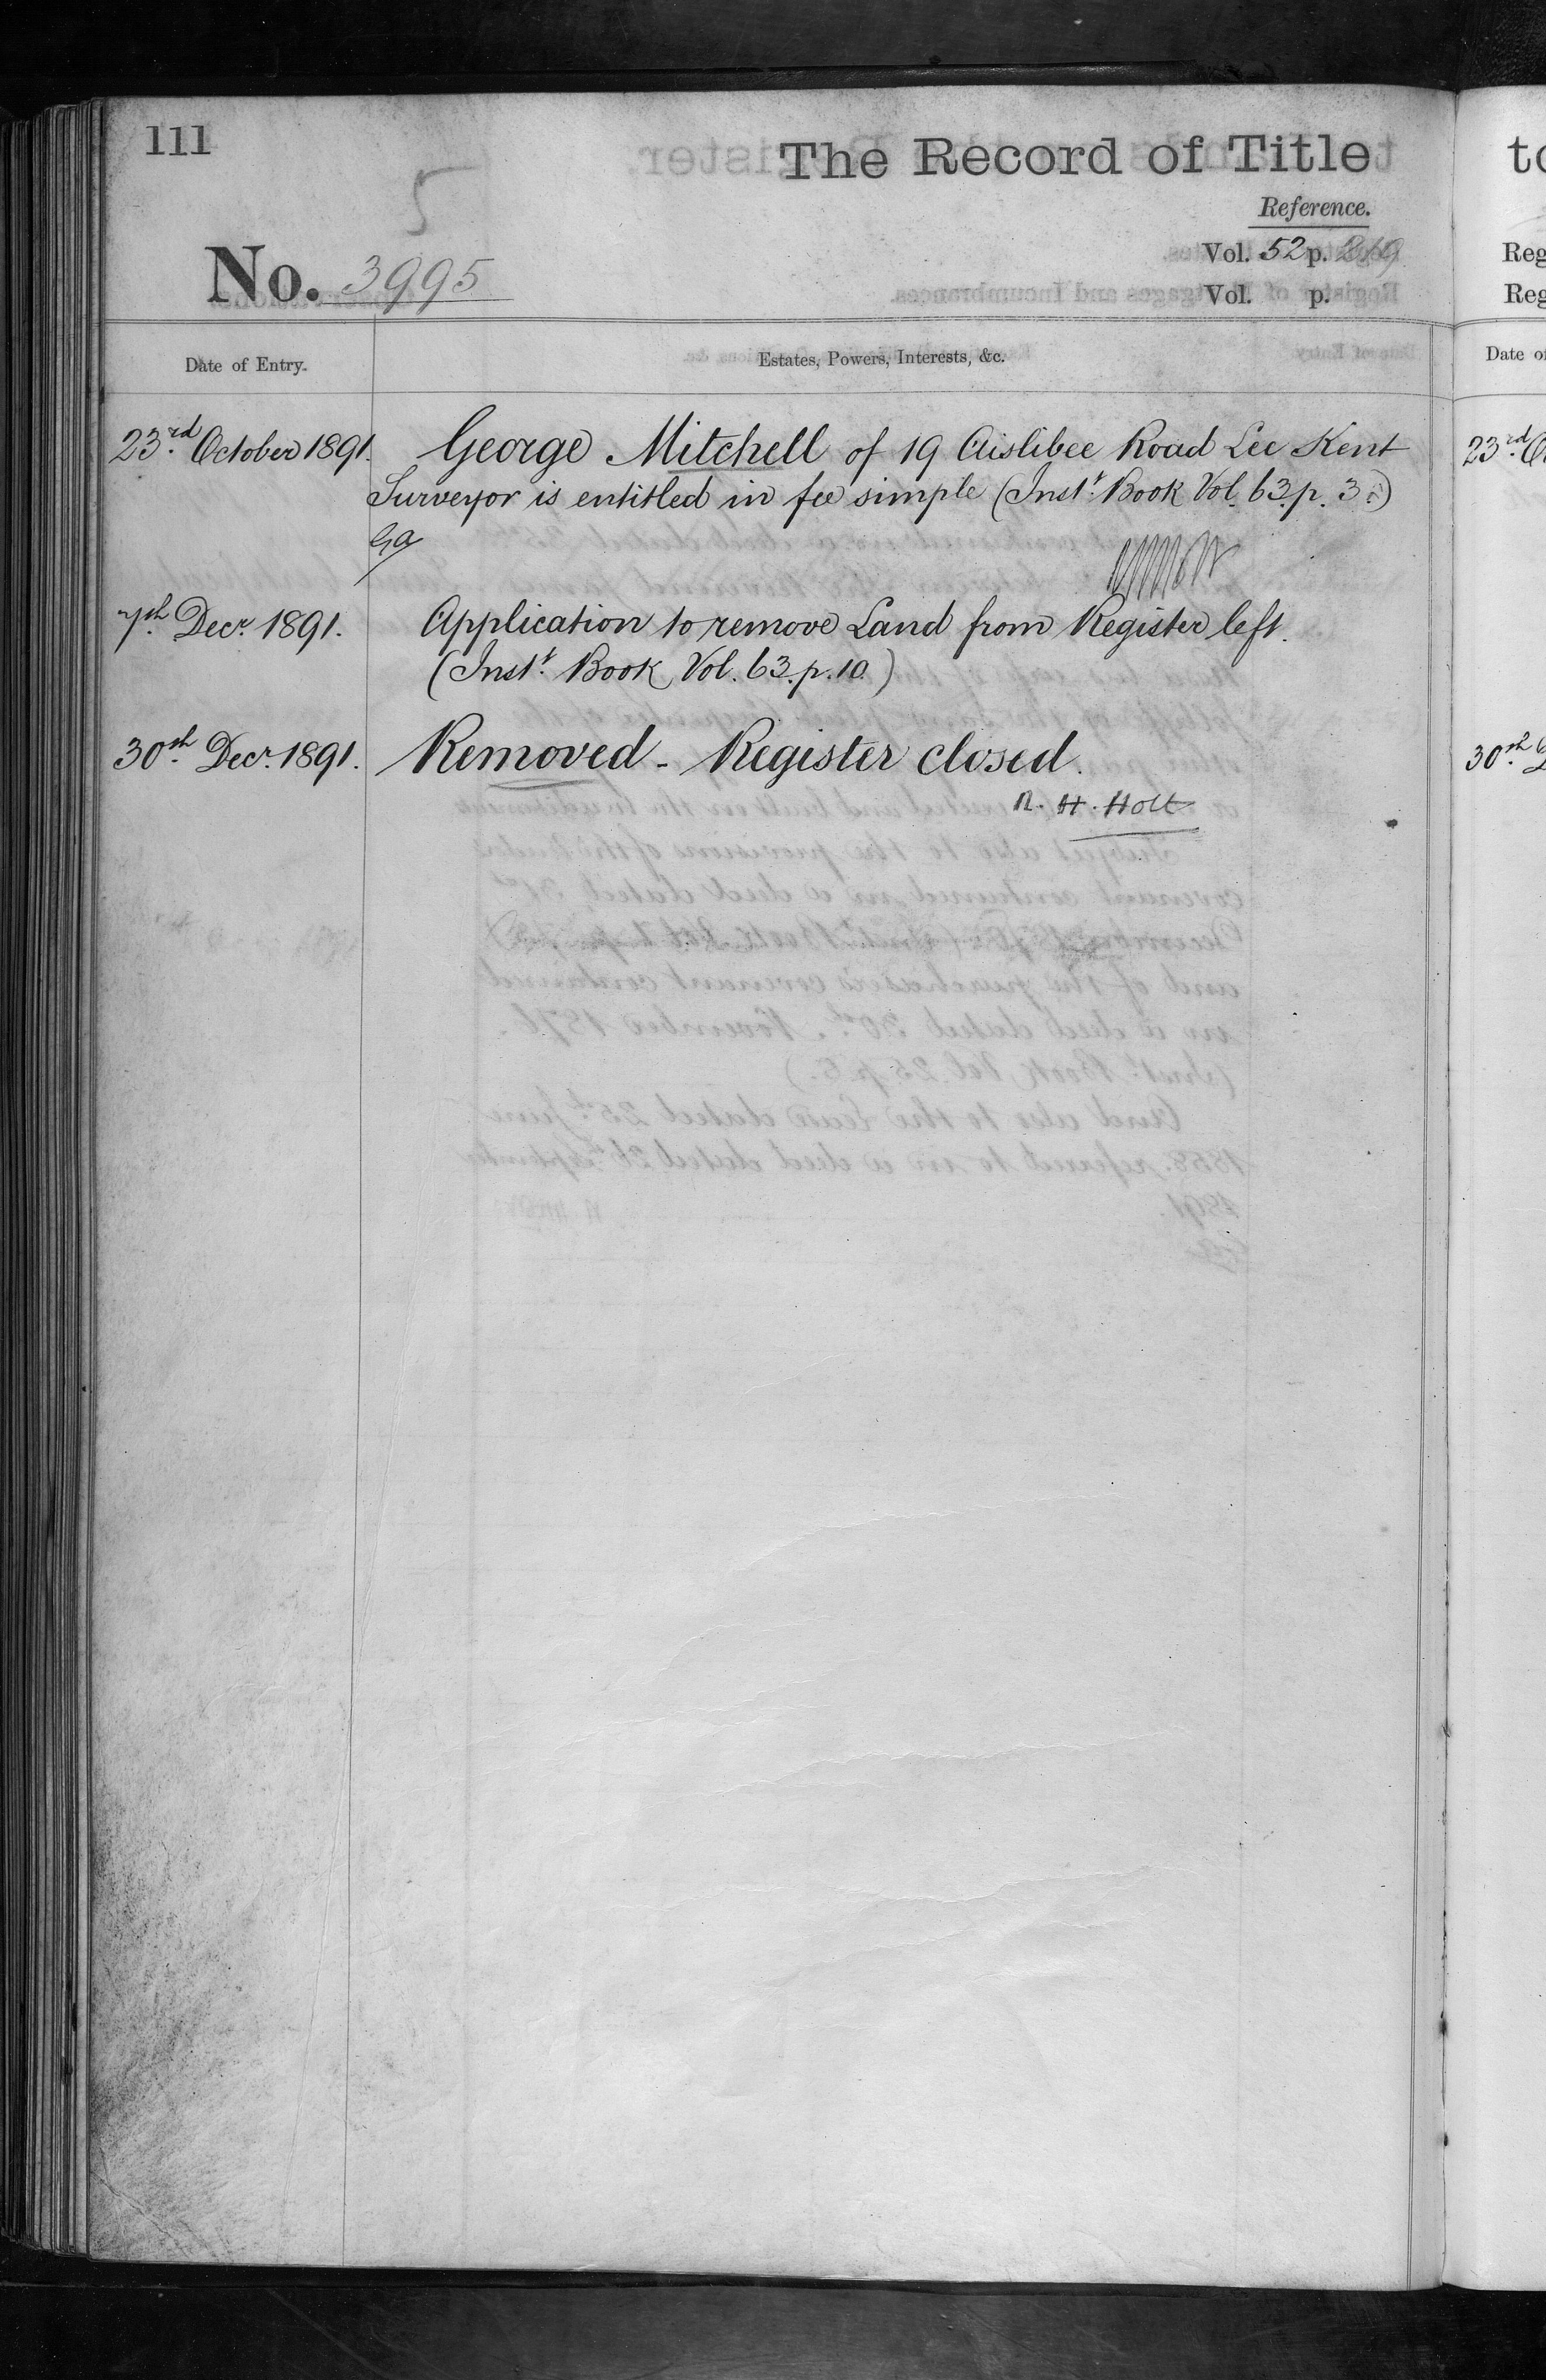 111
The Record of Title
5
Reference.
No. 3995
Vol. 52 p. 219
Vol. p.
Date of Entry.
Estates, Powers, Interests, &c.
23rd October 1891. George Mitchell of 19 Aislibee Road Lee Kent
Surveyor is entitled in fee simple (Instt. Book Vol. 63. p. 3.)
7th Decr. 1891. Application to remove Land from Register left.
(Instt. Book Vol. 63. p. 10)
30th Decr. 1891. Removed - Register closed.
R. H. Holt
to
Reg
Reg
Date of
23rd
30th